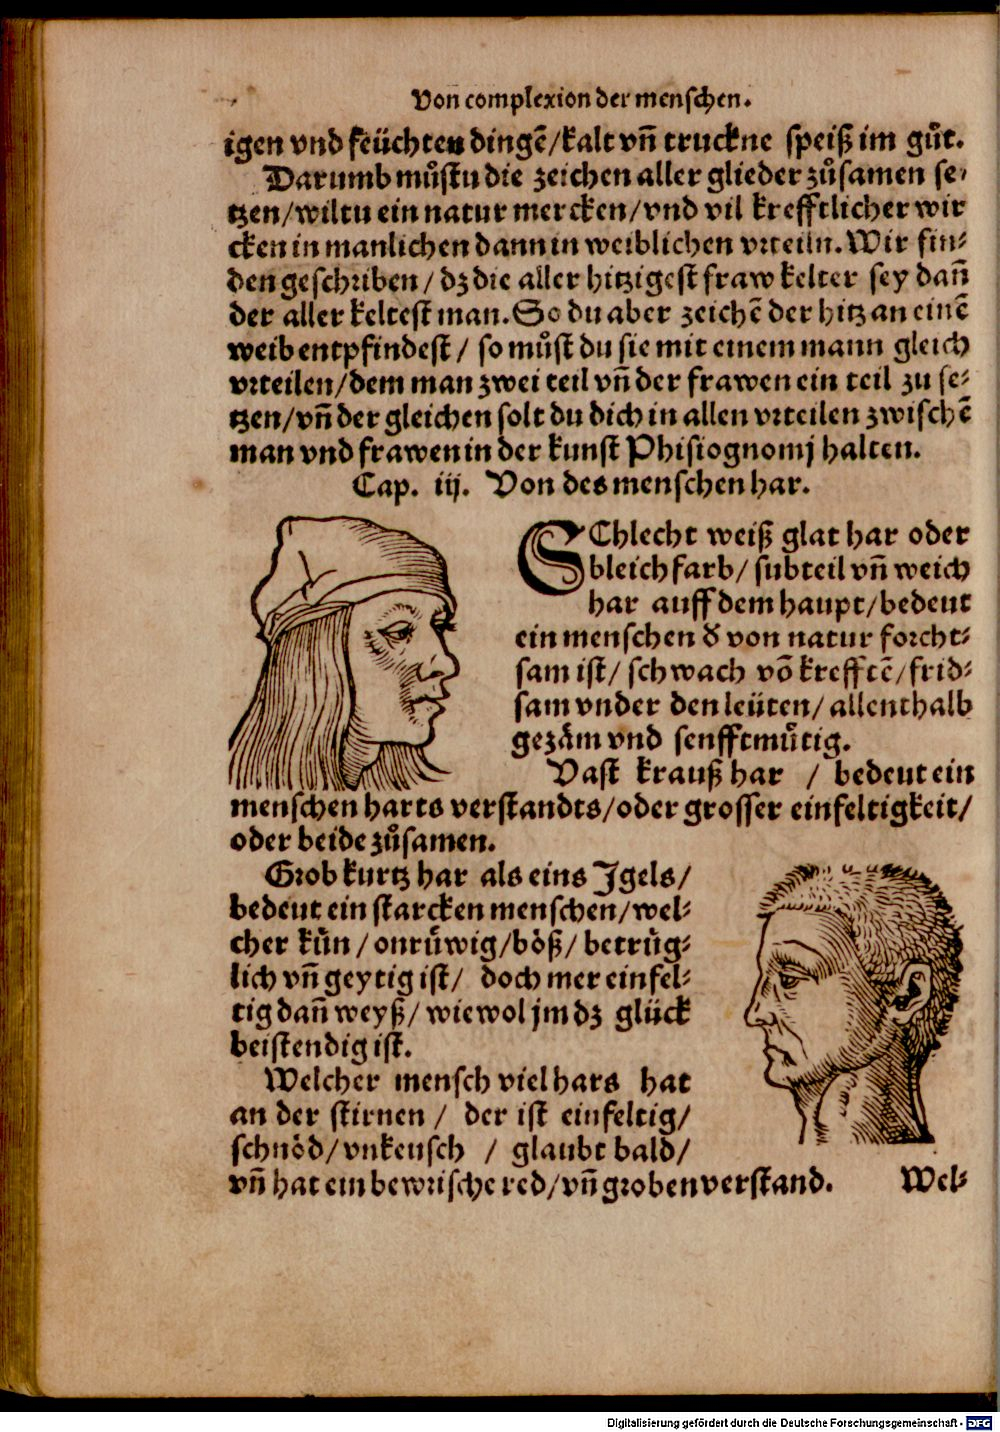 Von complexion der menschen.
igen vnd feüchten dingē/kalt vn̄ truckne speiß im gůt.
Darumb můstu die zeichen aller glieder zůsamen se-
tzen/wiltu ein natur mercken/vnd vil krefftlicher wir
cken in manlichen dann in weiblichen vrteiln. Wir fin-
den geschriben/ dz die aller hitzigest fraw kelter sey dan̄
der aller keltest man. So du aber zeichē der hitz an einē
weib entpfindest/ so můst du sie mit einem mann gleich
vrteilen/dem man zwei teil vn̄ der frawen ein teil zu se-
tzen/vn̄ der gleichen solt du dich in allen vrteilen zwischē
man vnd frawen in der kunst Phisiognomj halten.
Cap. iij. Von des menschen har.
SChlecht weiß glat har oder
bleichfarb/ subteil vn̄ weich
har auff dem haupt/bedeut
ein menschen d' von natur forcht-
sam ist/ schwach vō krefftē/frid-
sam vnder den leüten/ allenthalb
gezäm vnd senfftmůtig.
Vast krauß har / bedeut ein
menschen harts verstandts/oder grosser einfeltigkeit/
oder beide zůsamen.
Grob kurtz har als eins Jgels/
bedeut ein starcken menschen/wel-
cher kůn/onrůwig/böß/ betrůg-
lich vn̄ geytig ist/ doch mer einfel-
tig dan̄ weyß/ wiewol jm dz glück
beistendig ist.
Welcher mensch viel hars hat
an der stirnen/ der ist einfeltig/
schnöd/vnkeusch / glaubt bald/
vn̄ hat ein bewrische red/vn̄ groben verstand.
Wel-
Digitalisierung gefördert durch die Deutsche Forschungsgemeinschaft - DFG